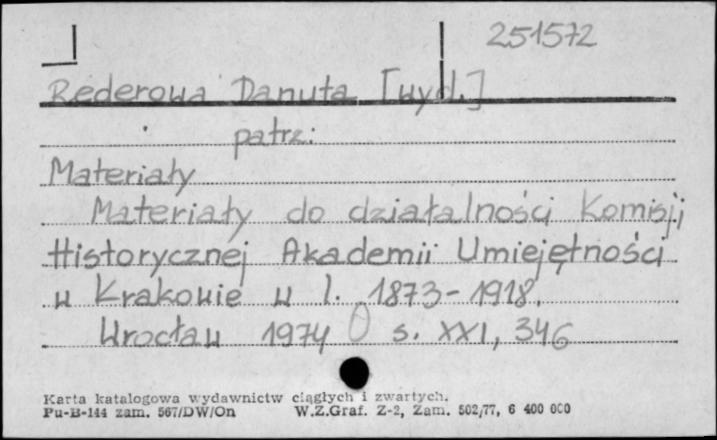 251572
Rederowa Danuta [wyd.]
patrz:
Materiały
Materiały do działalności Komisji
Historycznej Akademii Umiejętności
w Krakowie w l. 1873-1918.
Wrocław 1974 O s. XXI, 346
Karta katalogowa wydawnictw ciągłych i zwartych.
Pu-B-144 zam. 567/DW/On W.Z.Graf. Z-2, Zam. 502/77, 6 400 000